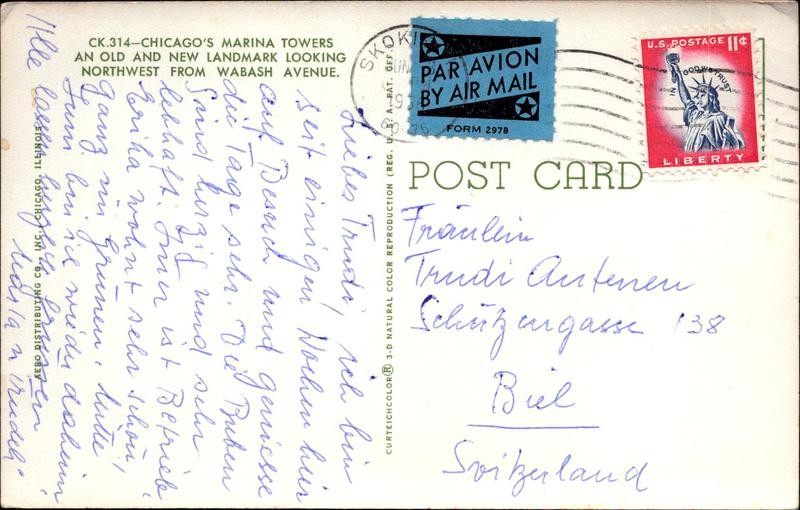 CK.314—CHICAGO'S MARINA TOWERS
AN OLD AND NEW LANDMARK LOOKING
NORTHWEST FROM WABASH AVENUE.
Liebes Trudi, ich bin
seit einigen Wochen hier
auf Besuch und geniesse
die Tage sehr. Die Buben
sind herzig und sehr
lebhaft. Immer ist Betrieb.
Erika wohnt sehr schön,
ganz im Grünen. Mitte
Juni bin ich wieder daheim
Alle lassen herzlich grüssen
AERO DISTRIBUTING CO., INC., CHICAGO, ILLINOIS
CURTEICHCOLOR® 3-D NATURAL COLOR REPRODUCTION (REG. U.S.A. PAT. OFF.)
SKOKI
PAR AVION
BY AIR MAIL
FORM 2978
U.S. POSTAGE 11¢
IN GOD WE TRUST
LIBERTY
POST CARD
Fräulein
Trudi Antenen
Schützengasse 138
Biel
Svitzerland